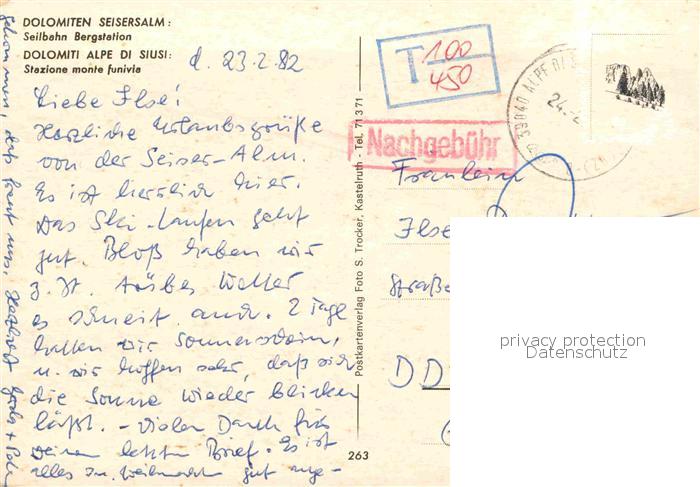 DOLOMITEN SEISERSALM:
Seilbahn Bergstation
DOLOMITI ALPE DI SIUSI:
Stazione monte funivia
d. 23.2.82
Liebe Ilse!
Herzliche Urlaubsgrüße
von der Seiser-Alm.
Es ist herrlich hier.
Das Ski-Laufen geht
gut. Bloß haben wir
z. Zt. trübes Wetter
es schneit auch. 2 Tage
hatten wir Sonnenschein,
u. wir hoffen sehr, daß sich
die Sonne wieder blicken
läßt. - Vielen Dank für
Deinen letzten Brief. Es ist
alles zu Weihnachten gut ange-
kommen, das freut uns. Herzlichst
263
Postkartenverlag Foto S. Trocker, Kastelruth - Tel. 71371
T 100
450
Nachgebühr
39040 ALPE DI
24.2
Fräulein
Ilse
Straße
DD
privacy protection
Datenschutz